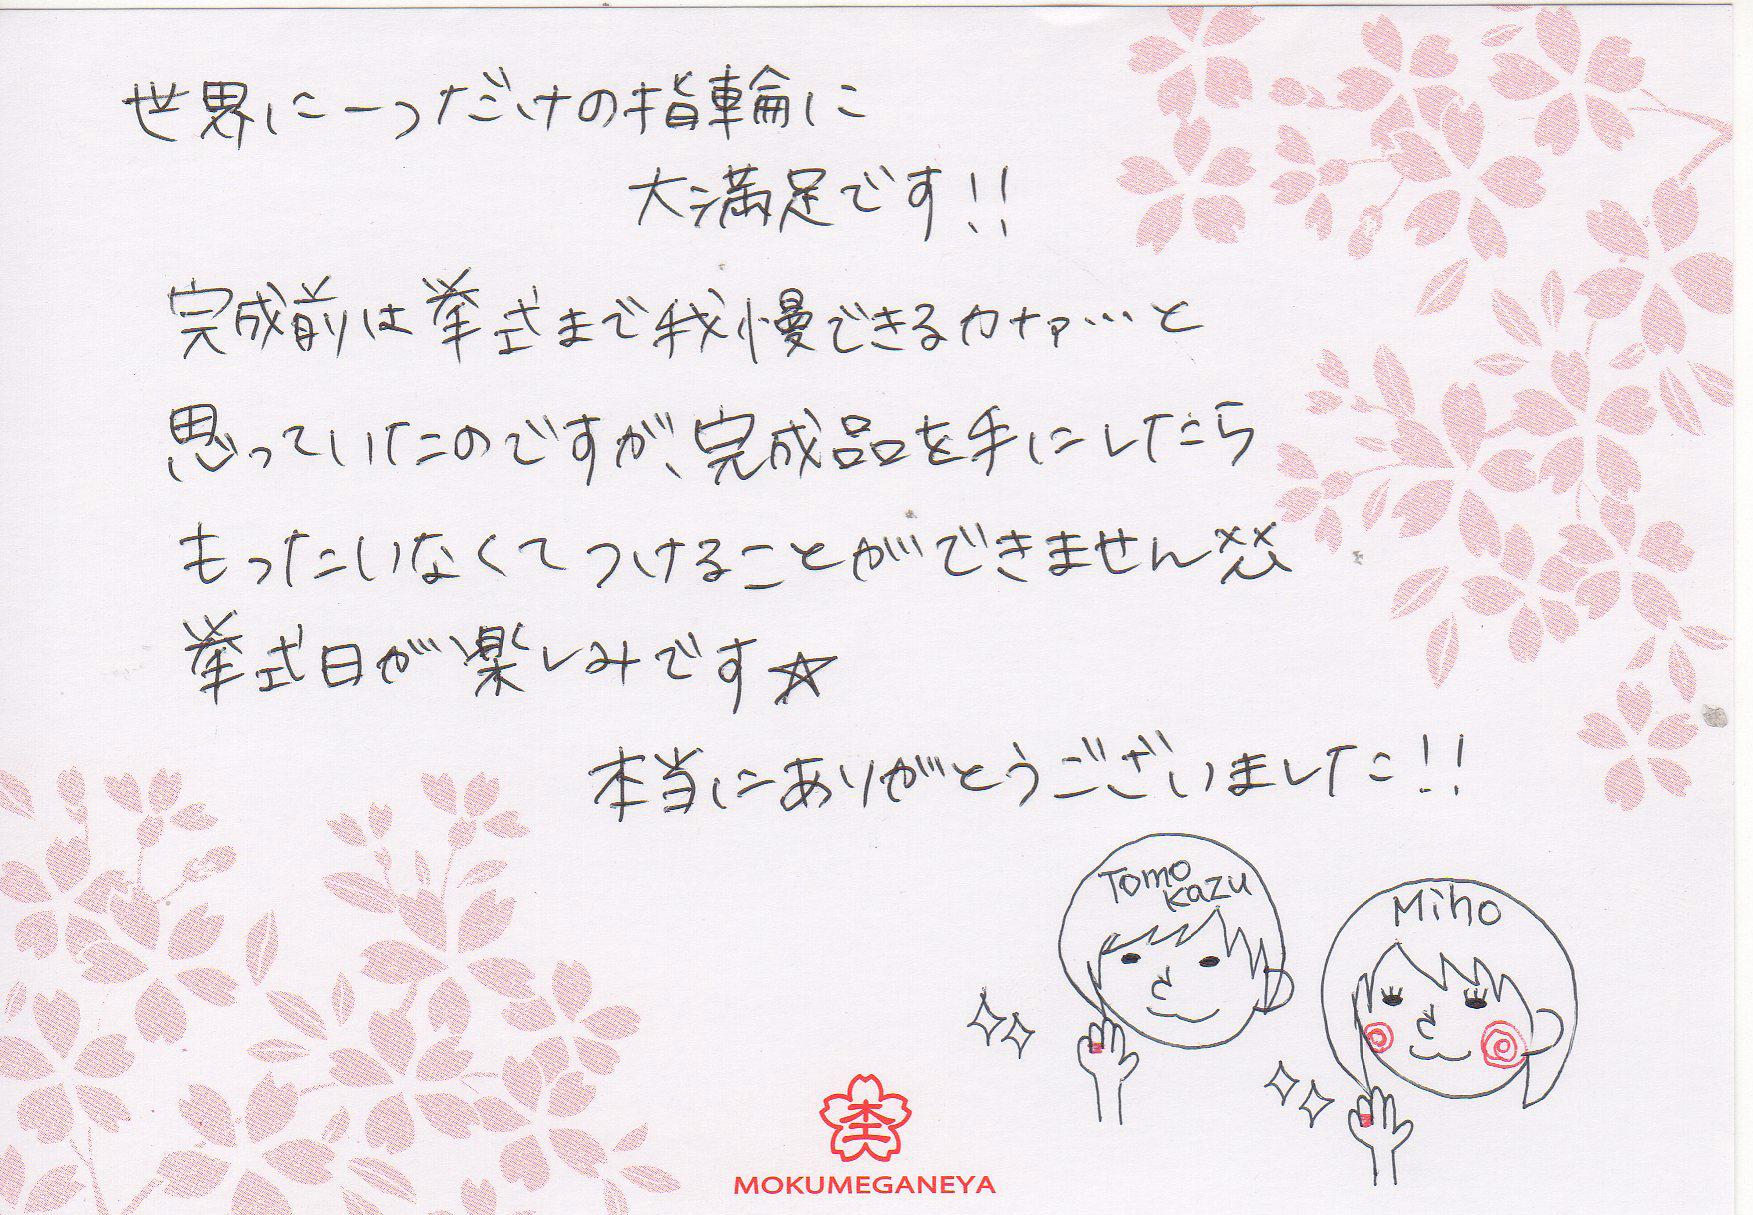 世界に一つだけの指輪に
大満足です!!
完成前は挙式まで我慢できるカナァ…と
思っていたのですが、完成品を手にしたら
もったいなくてつけることができません
挙式日が楽しみです☆
本当にありがとうございました!!
Tomo
Kazu
Miho
MOKUMEGANEYA